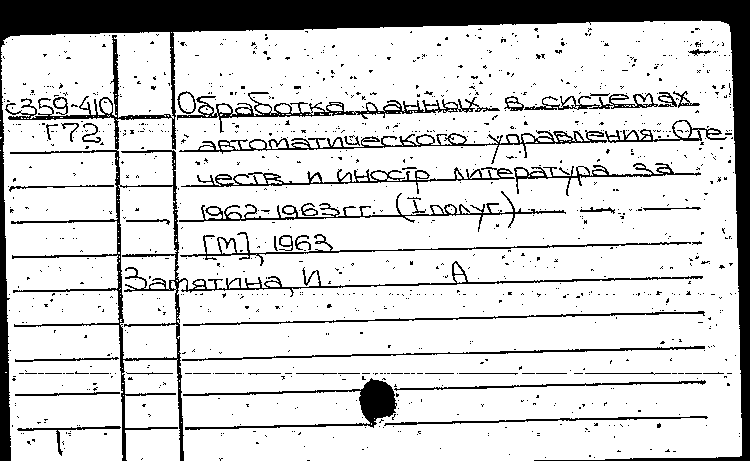 с359-410 Обработка данных в системах
Г72 автоматического управления. Оте-
честв. и иностр литература за
1962-1963гг. (I полуг.)
[М], 1963
Замятина, И. А